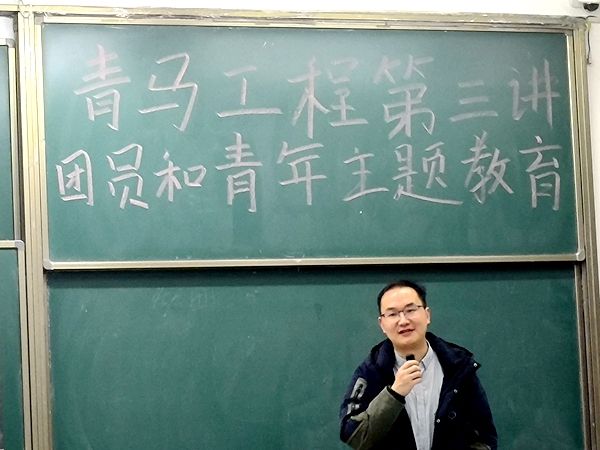 青马工程第三讲
团员和青年主题教育